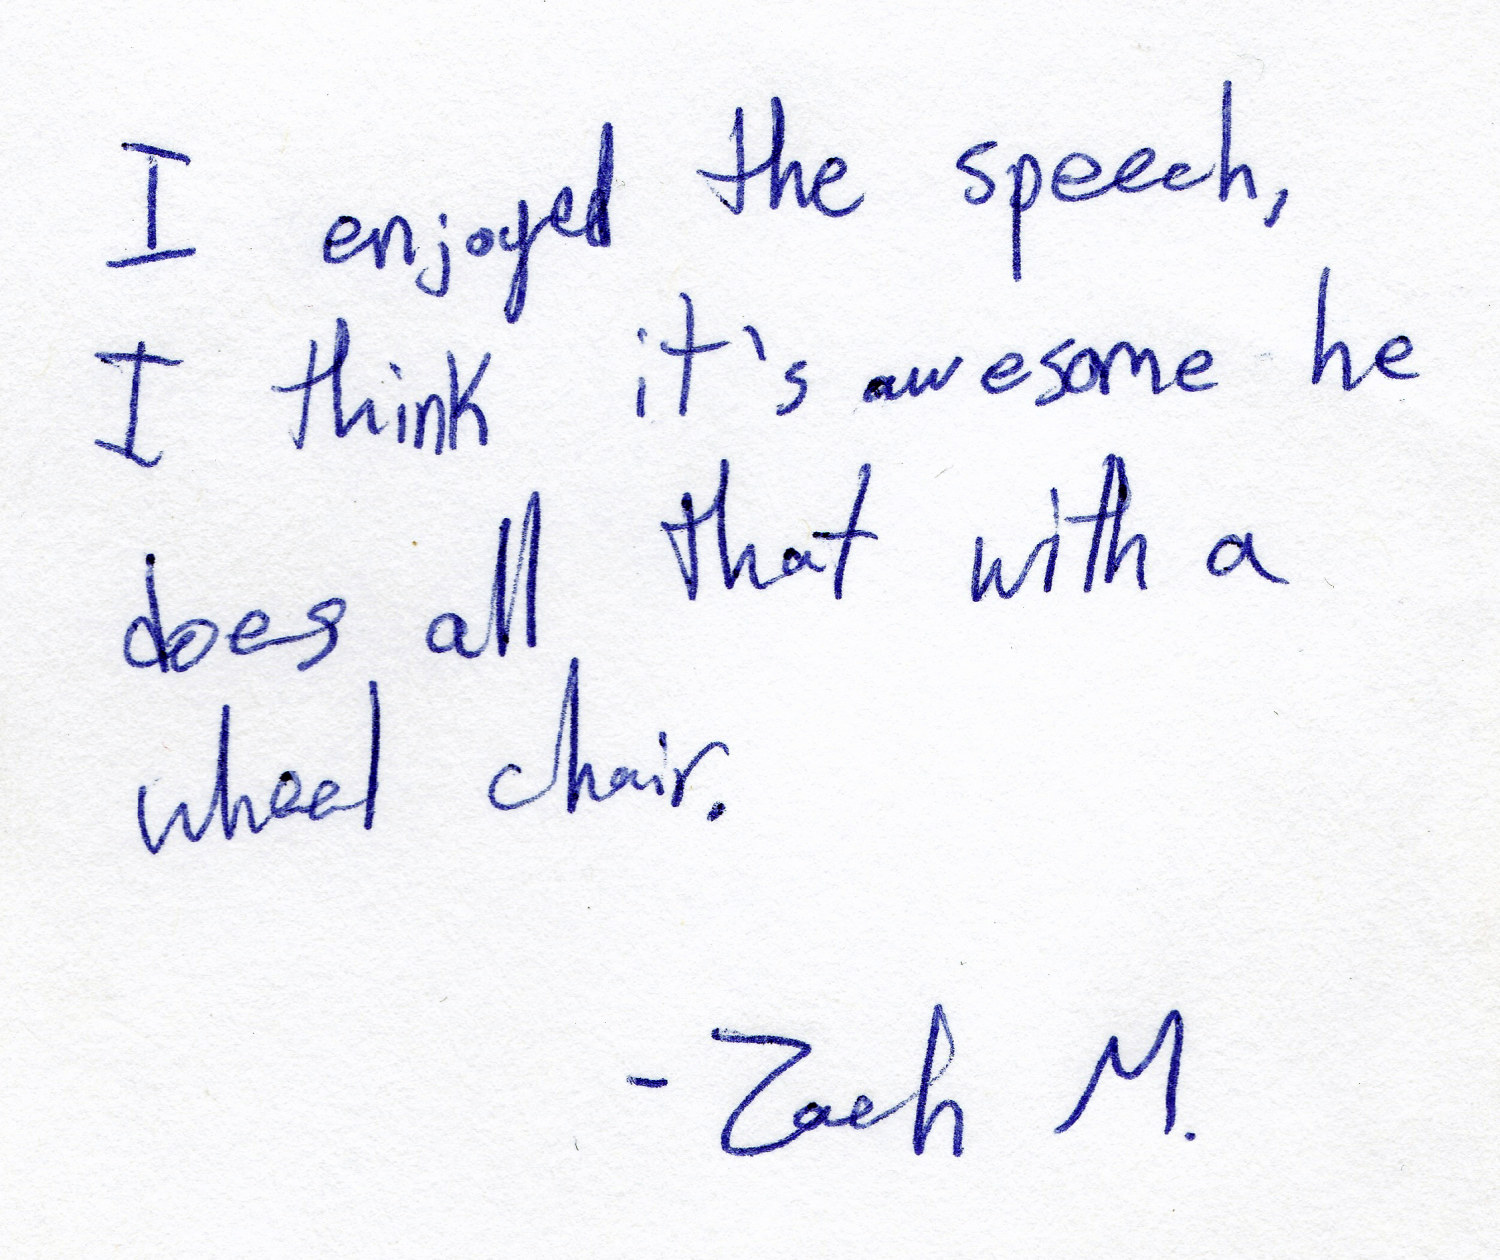 I enjoyed the speech,
I think it's awesome he
does all that with a
wheel chair.
-Zach M.